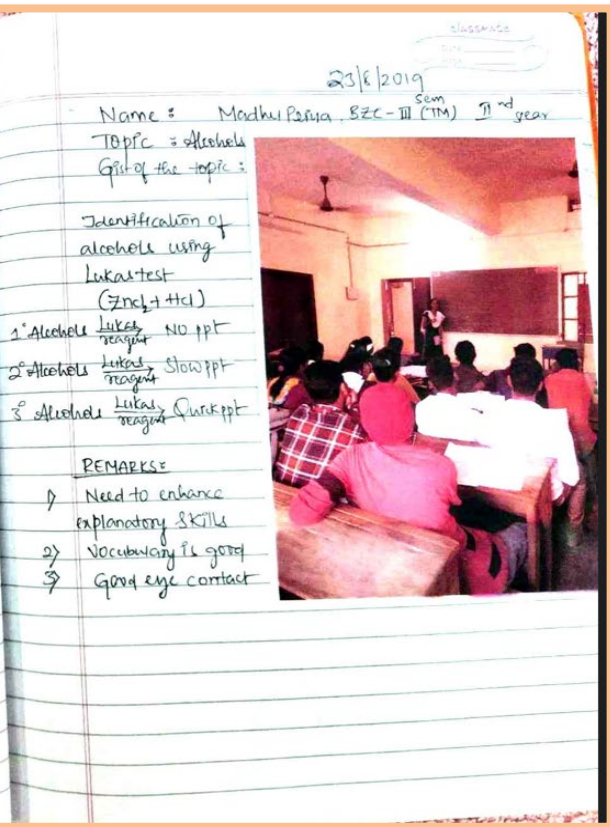 classmate
Date
Page
23/8/2019
Name : Madhu Periya, BZC - III Sem (TM) IInd year
Topic : Alcohols
Gist of the topic :
Identification of
alcohols using
Lukas test
(Zncl2 + Hcl)
1° Alcohols Lukas reagent NO ppt
2° Alcohols Lukas reagent Slow ppt
3° Alcohols Lukas reagent Quick ppt
REMARKS:
1) Need to enhance
explanatory skills
2) Vocubulary is good
3) Good eye contact